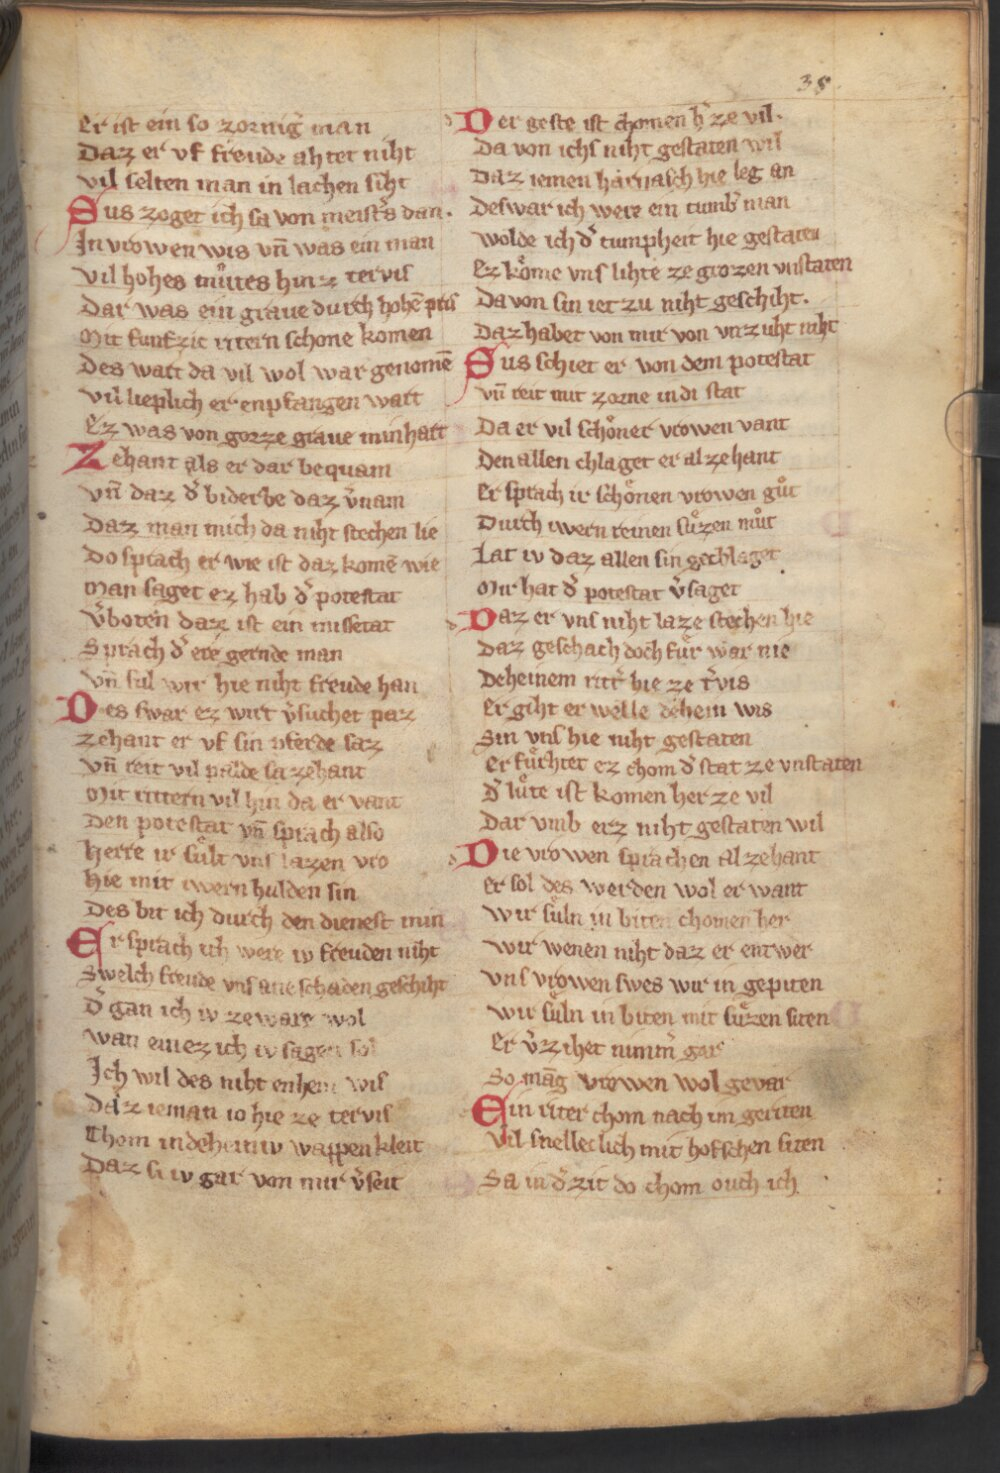 38
Er ist ein so zornig̃ man
Daz er vf freude ahtet niht
Vil selten man in lachen siht
Sus zoget ich sa von meist̃s dan.
In vrowen wis vn̄ was ein man
Vil hohes můtes hinz tervis
Dar was ein graue durch hohē pris
Mit funfzic rittern schone komen
Des wart da vil wol war genomē
Vn̄ lieplich er enpfangen wart
Ez was von gorze graue minhart
Zehant als er dar bequam
Vn̄ daz d̃ biderbe daz ṽnam
Daz man mich da niht stechen lie
Do sprach er wie ist daz komē wie
Man saget ez hab d̃ potestat
Ṽboten daz ist ein missetat
Sprach d̃ ere gernde man
Vn̄ sul wir hie niht freude han
Des swar ez wirt ṽsuchet paz
zehant er vf sin pferde saz
Vn̄ reit vil palde sa zehant
Mit rittern vil hin da er vant
Den potestat vn̄ sprach also
Herre ir sůlt vns lazen vro
Hie mit iwern hulden sin
Des bit ich durch den dienest min
Er sprach ich were iv freuden niht
Swelch freude vns ane schaden geschiht
D̃ gan ich iv zeware wol
Wan einez ich iv sagen sol
Ich wil des niht enheni wis
Daz ieman io hie ze tervis
Chom in deheiniv wappen kleit
Daz si iv gar von mir ṽseit
Der geste ist chomen h̃ ze vil.
Da von ichs niht gestaten wil
Daz iemen harnasch hie leg an
Deswar ich were ein tumb̃ man
Wolde ich d̃ tumpheit hie gestaten
Ez kőme vns lihte ze grozen vnstaten
Da von sin ietzu niht geschiht.
Daz habet von mir von vnzuht niht
Sus schiet er von dem potestat
Vn̄ reit mit zorne in di stat
Da er vil schőner vrowen vant
Den allen chlaget er alzehant
Er sprach ir schőnen vrowen gůt
Durch iwern reinen sůzen můt
Lat iv daz allen sin gechlaget
Mir hat d̃ potestat ṽsaget
Daz er vns niht laze stechen hie
Daz geschach doch fůr war nie
Deheinem ritt̃ hie ze t̃vis
Er giht er welle dehein wis
Sin vns hie niht gestaten
Er fůrhtet ez chom d̃ stat ze vnstaten
D̃ lůte ist komen her ze vil
Dar vmb erz niht gestaten wil
Die vrowen sprachen alzehant
Er sol des werden wol erwant
Wir sůln in biten chomen her
Wir wenen niht daz er entwer
Vns vrowen swes wir in gepiten
Wir sůln in biten mit sůzen siten
Er ṽzihet nimm̃ gar
So mag vrowen wol gevar
Ein riter chom nach im geriten
Vil snelleclich mit hofschen siten
Sa in d̃ zit do chom ouch ich